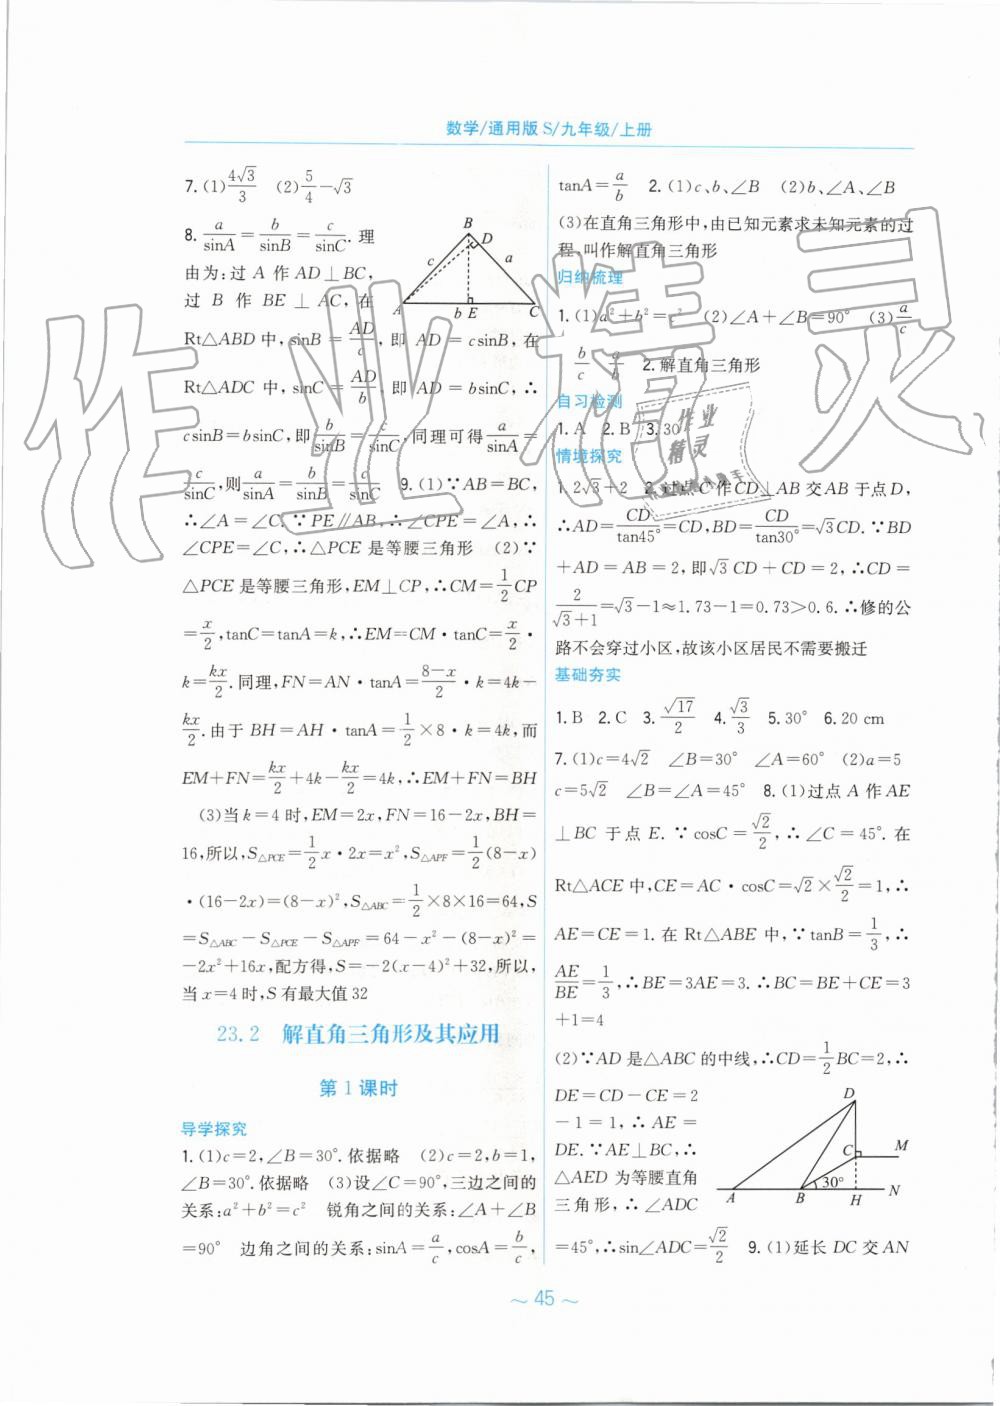 数学/通用版 S/九年级/上册
7. (1) 4√3/3 (2) 5/4 - √3
8. a/sinA = b/sinB = c/sinC. 理
由为:过 A 作 AD⊥BC,
过 B 作 BE⊥AC, 在
Rt△ABD 中, sinB = AD/c, 即 AD = csinB, 在
Rt△ADC 中, sinC = AD/b, 即 AD = bsinC, ∴
csinB=bsinC, 即 b/sinB = c/sinC. 同理可得 a/sinA =
c/sinC, 则 a/sinA = b/sinB = c/sinC 9. (1)∵AB=BC,
∴∠A=∠C. ∵PE∥AB, ∴∠CPE=∠A, ∴
∠CPE=∠C, ∴△PCE 是等腰三角形 (2)∵
△PCE 是等腰三角形, EM⊥CP, ∴CM= 1/2 CP
= x/2, tanC=tanA=k, ∴EM=CM·tanC= x/2 ·
k= kx/2. 同理, FN=AN·tanA= (8-x)/2 ·k=4k-
kx/2. 由于 BH=AH·tanA= 1/2 ×8·k=4k, 而
EM+FN= kx/2 +4k- kx/2 =4k, ∴EM+FN=BH
(3)当 k=4 时, EM=2x, FN=16-2x, BH=
16, 所以, S△PCE= 1/2 x·2x=x², S△APF= 1/2 (8-x)
·(16-2x)=(8-x)², S△ABC= 1/2 ×8×16=64, S
=S△ABC-S△PCE-S△APF=64-x²-(8-x)²=
-2x²+16x, 配方得, S=-2(x-4)²+32, 所以,
当 x=4 时, S 有最大值 32
23.2 解直角三角形及其应用
第 1 课时
导学探究
1. (1)c=2, ∠B=30°. 依据略 (2)c=2, b=1,
∠B=30°. 依据略 (3)设∠C=90°, 三边之间的
关系: a²+b²=c² 锐角之间的关系: ∠A+∠B
=90° 边角之间的关系: sinA= a/c, cosA= b/c,
B
D
c
a
A
b E
C
tanA= a/b 2. (1)c、b、∠B (2)b、∠A、∠B
(3)在直角三角形中, 由已知元素求未知元素的过
程, 叫作解直角三角形
归纳梳理
1. (1)a²+b²=c² (2)∠A+∠B=90° (3) a/c
b/c a/b 2. 解直角三角形
自习检测
1. A 2. B 3. 30
情境探究
1. 2√3+2 2. 过点 C 作 CD⊥AB 交 AB 于点 D,
∴AD= CD/tan45° =CD, BD= CD/tan30° =√3CD. ∵BD
+AD=AB=2, 即√3CD+CD=2, ∴CD=
2/(√3+1) =√3-1≈1.73-1=0.73>0.6. ∴修的公
路不会穿过小区, 故该小区居民不需要搬迁
基础夯实
1. B 2. C 3. √17/2 4. √3/3 5. 30° 6. 20 cm
7. (1)c=4√2 ∠B=30° ∠A=60° (2)a=5
c=5√2 ∠B=∠A=45° 8. (1)过点 A 作 AE
⊥BC 于点 E. ∵cosC= √2/2, ∴∠C=45°. 在
Rt△ACE 中, CE=AC·cosC=√2× √2/2 =1, ∴
AE=CE=1. 在 Rt△ABE 中, ∵tanB= 1/3, ∴
AE/BE = 1/3, ∴BE=3AE=3. ∴BC=BE+CE=3
+1=4
(2)∵AD 是△ABC 的中线, ∴CD= 1/2 BC=2, ∴
DE=CD-CE=2
-1=1, ∴AE=
DE. ∵AE⊥BC, ∴
△AED 为等腰直角
三角形, ∴∠ADC
=45°, ∴sin∠ADC= √2/2 9. (1)延长 DC 交 AN
D
C
M
30°
A
B
H
N
~ 45 ~
作业精灵
作业
精灵